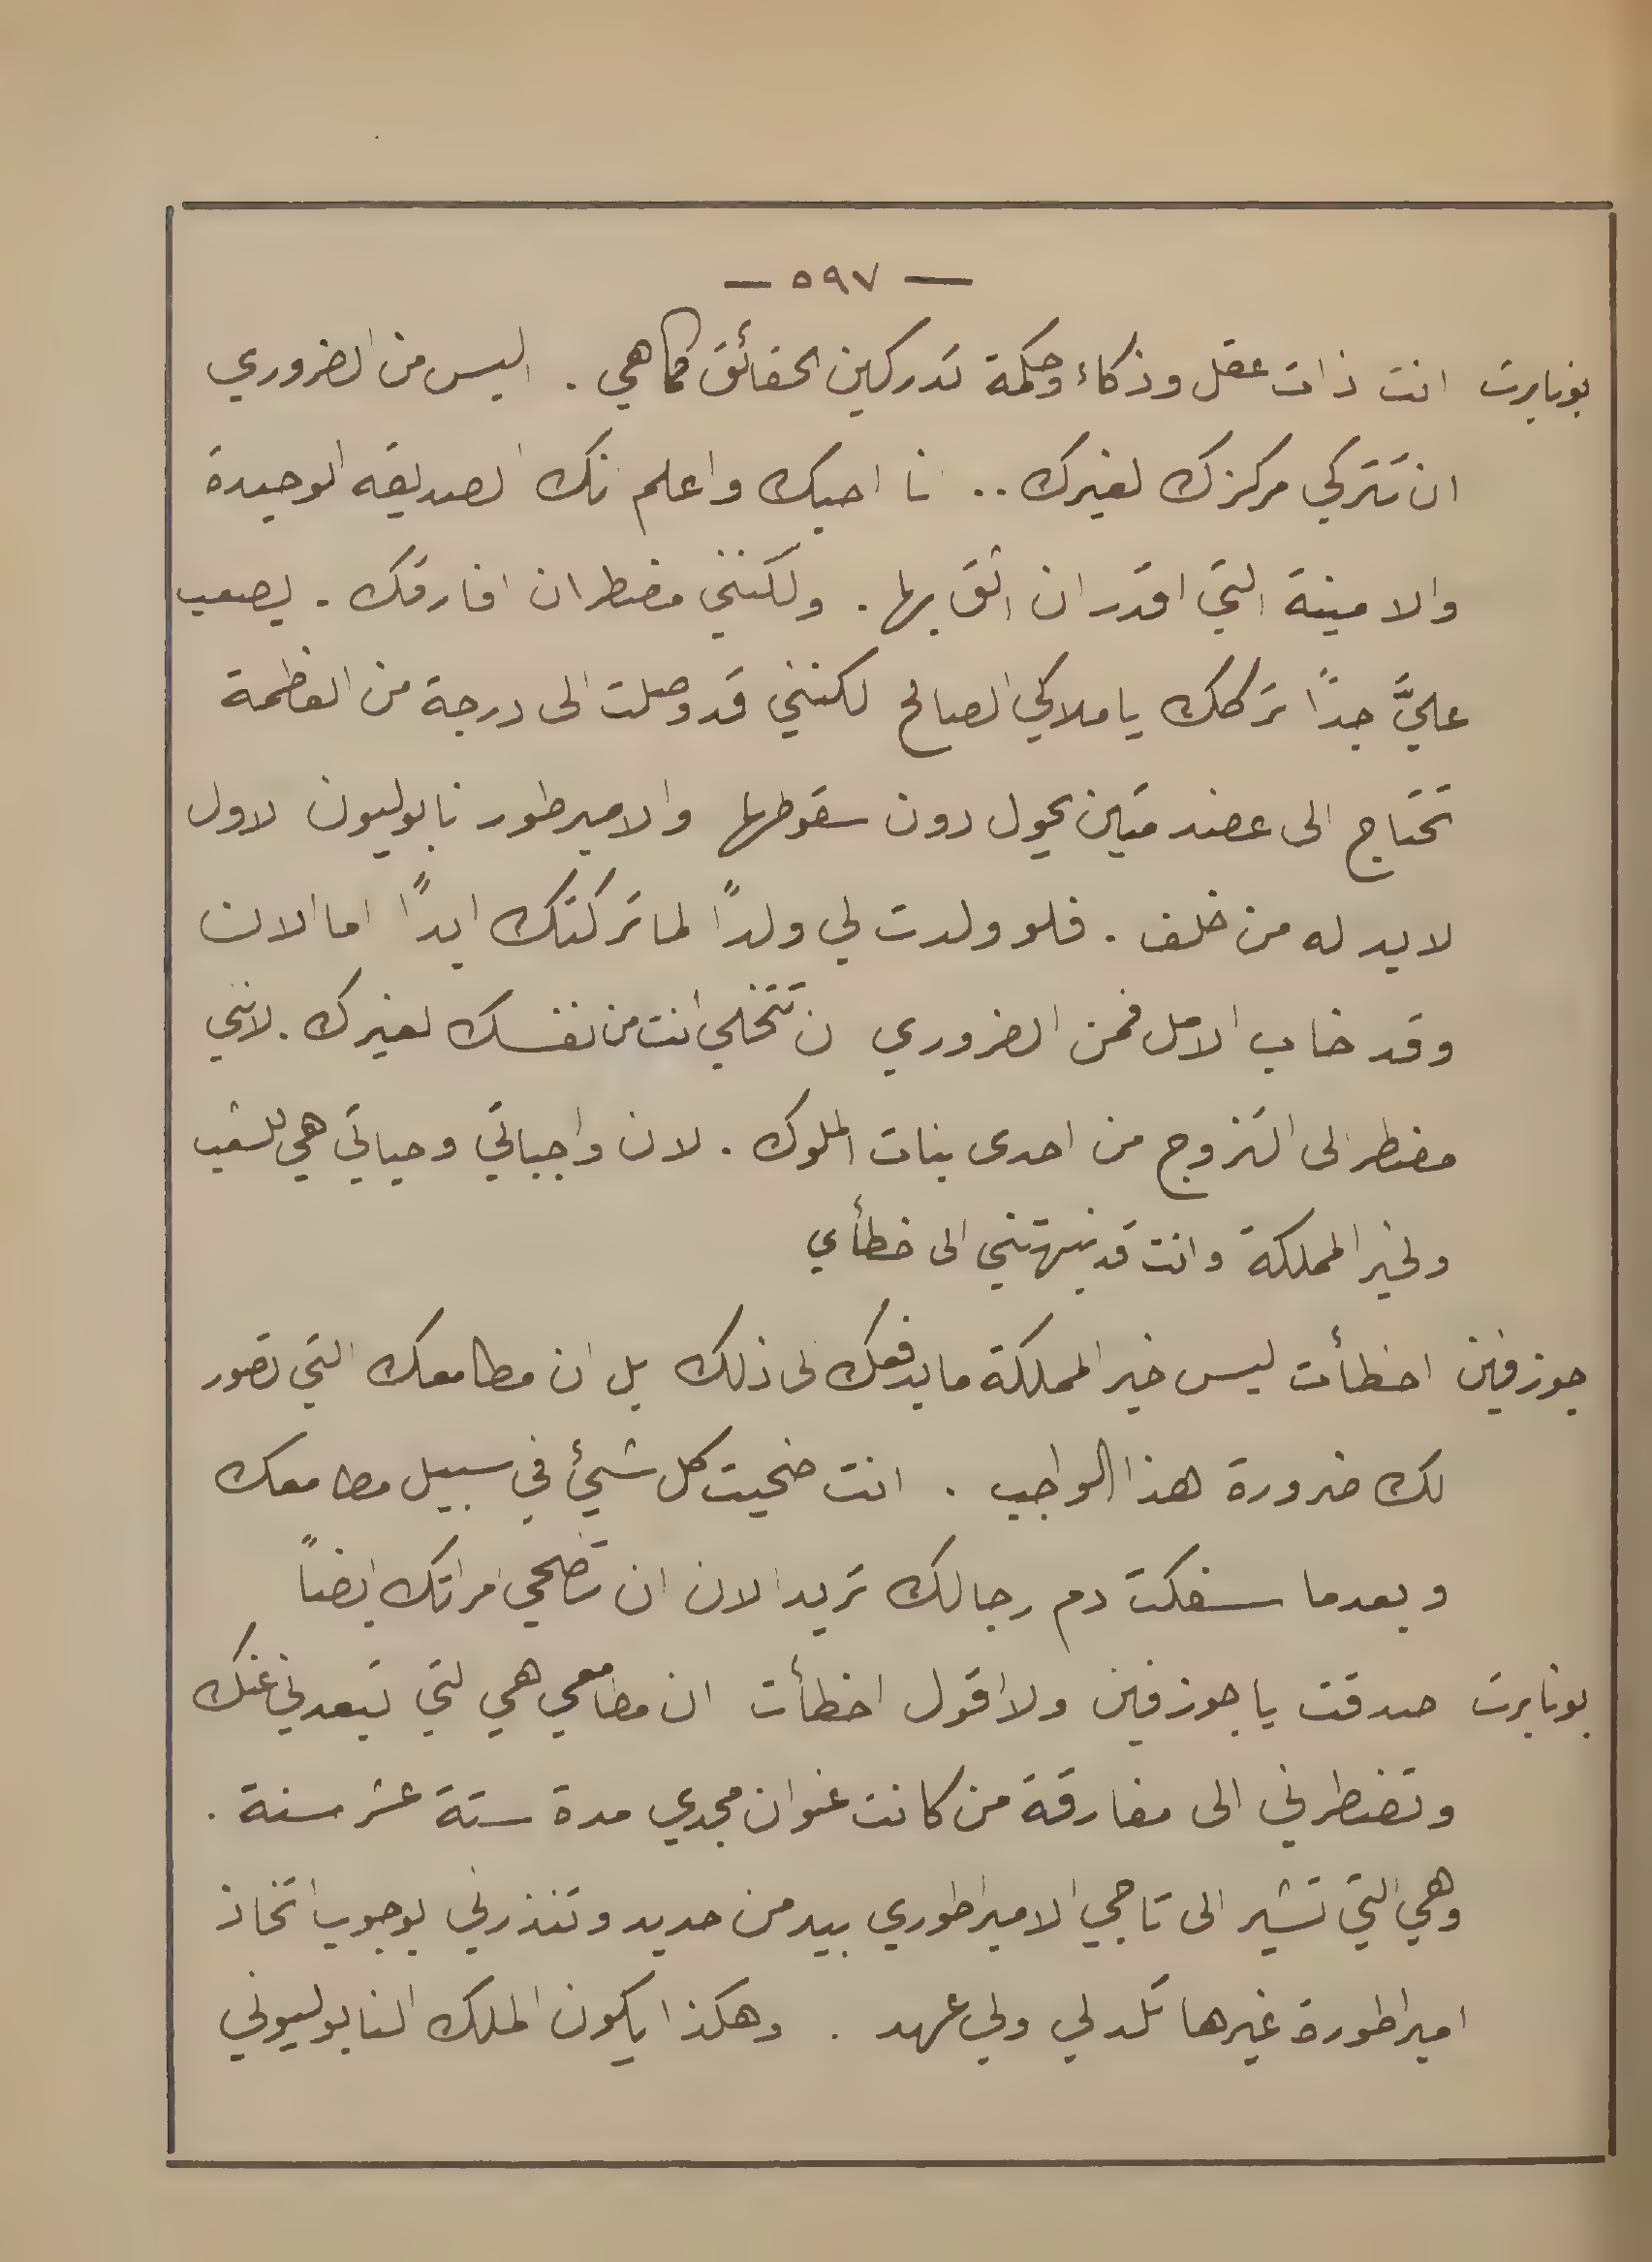 — ٥٩٧ —
بونابرت انت ذات عقل وذكاء وحكمة تدركين الحقائق كما هي . اليس من الضروري
ان تتركي مركزك لغيرك .. انا احبك واعلم انك الصديقه الوحيدة
والامينة التي اقدر ان اثق بها . ولكنني مضطر ان افارقك . يصعب
عليَّ جدًا تركك يا ملاكي الصالح لكنني قد وصلت الى درجة من العظمة
تحتاج الى عضد متين يحول دون سقوطها والامبرطور نابوليون الاول
لابد له من خلف . فلو ولدت لي ولدًا لما تركتك ابدًا اما الان
وقد خاب الامل فمن الضروري ان تتخلي انت من نفسك لغيرك . لانني
مضطر الى التزوج من احدى بنات الملوك . لان واجباتي وحياتي هي للشعب
ولخير المملكة وانت قد نبهتني الى خطأي
جوزفين اخطأت ليس خير المملكة ما يدفعك الى ذلك بل ان مطامعك التي تصور
لك ضرورة هذا الواجب . انت ضحيت كل شيئ في سبيل مطامعك
وبعدما سفكت دم رجالك تريد الان ان تضحي امراتك ايضاً
بونابرت صدقت يا جوزفين ولا اقول اخطأت ان مطامعي هي التي تبعدني عنك
وتضطرني الى مفارقة من كانت عنوان مجدي مدة ستة عشر سنة .
وهي التي تشير الى تاجي الامبراطوري بيد من حديد وتنذرني بوجوب اتخاذ
امبراطورة غيرها تلد لي ولي عهد . وهكذا يكون الملك النابوليوني